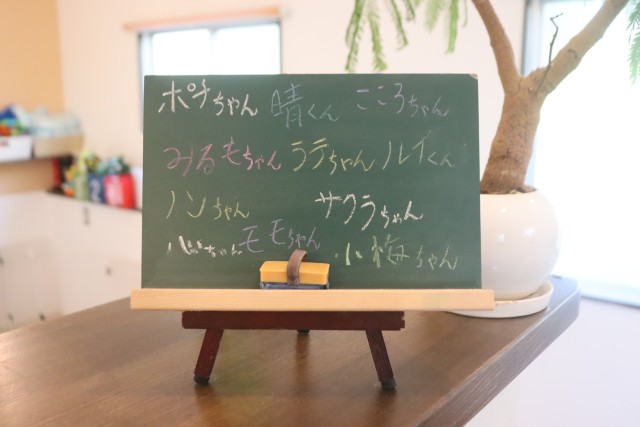 ポチちゃん 晴くん こころちゃん
みるもちゃん ララちゃん ルイくん
ノンちゃん サクラちゃん
ちゃん モモちゃん 小梅ちゃん